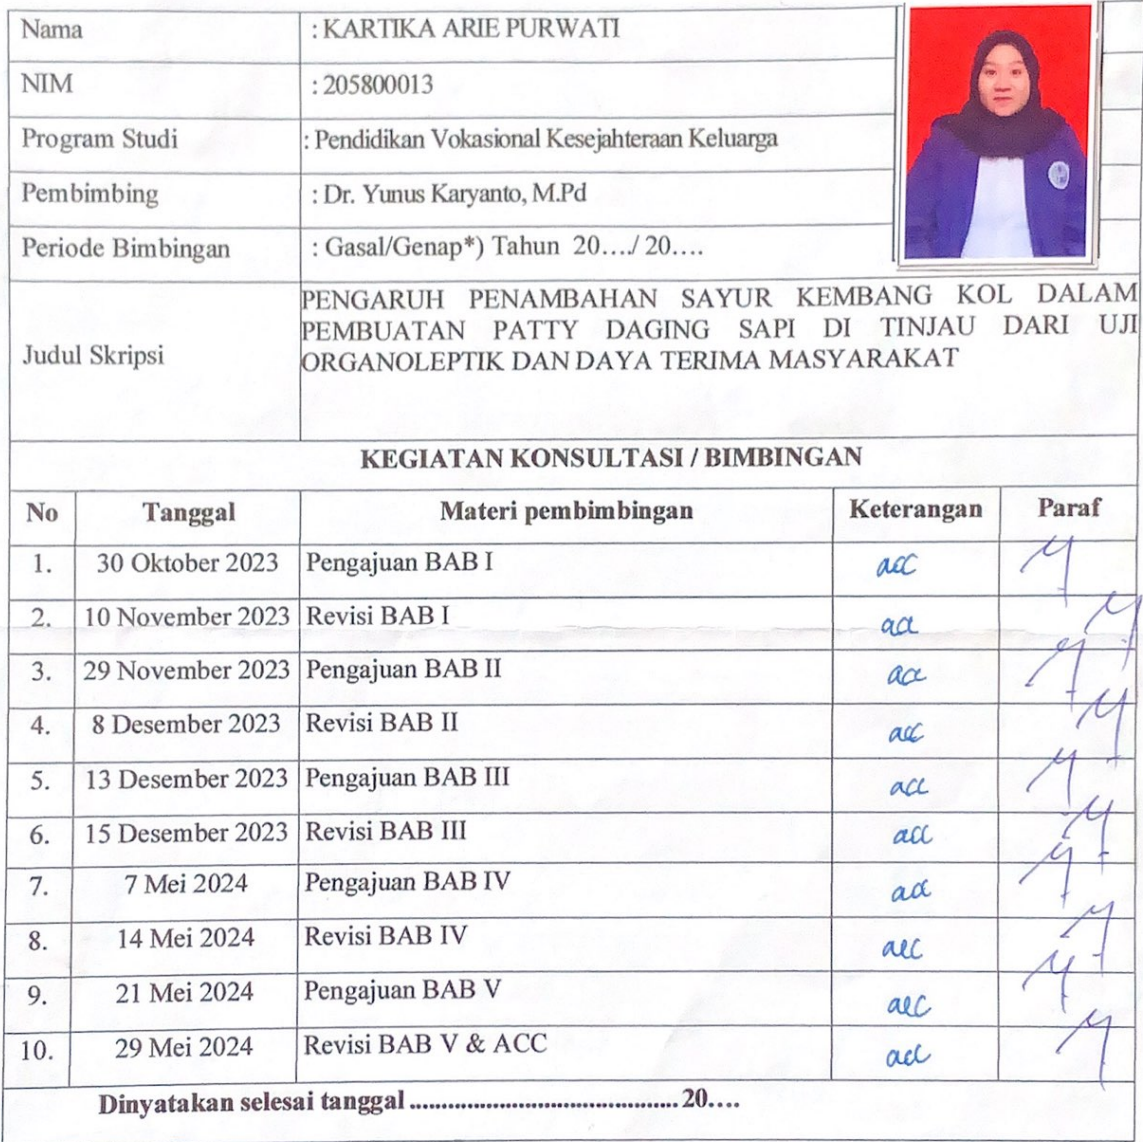 Nama : KARTIKA ARIE PURWATI
NIM : 205800013
Program Studi : Pendidikan Vokasional Kesejahteraan Keluarga
Pembimbing : Dr. Yunus Karyanto, M.Pd
Periode Bimbingan : Gasal/Genap*) Tahun 20..../ 20....
Judul Skripsi
PENGARUH PENAMBAHAN SAYUR KEMBANG KOL DALAM
PEMBUATAN PATTY DAGING SAPI DI TINJAU DARI UJI
ORGANOLEPTIK DAN DAYA TERIMA MASYARAKAT
KEGIATAN KONSULTASI / BIMBINGAN
No Tanggal Materi pembimbingan Keterangan Paraf
1. 30 Oktober 2023 Pengajuan BAB I acc
2. 10 November 2023 Revisi BAB I acc
3. 29 November 2023 Pengajuan BAB II acc
4. 8 Desember 2023 Revisi BAB II acc
5. 13 Desember 2023 Pengajuan BAB III acc
6. 15 Desember 2023 Revisi BAB III acc
7. 7 Mei 2024 Pengajuan BAB IV acc
8. 14 Mei 2024 Revisi BAB IV acc
9. 21 Mei 2024 Pengajuan BAB V acc
10. 29 Mei 2024 Revisi BAB V & ACC acc
Dinyatakan selesai tanggal ........................................... 20....